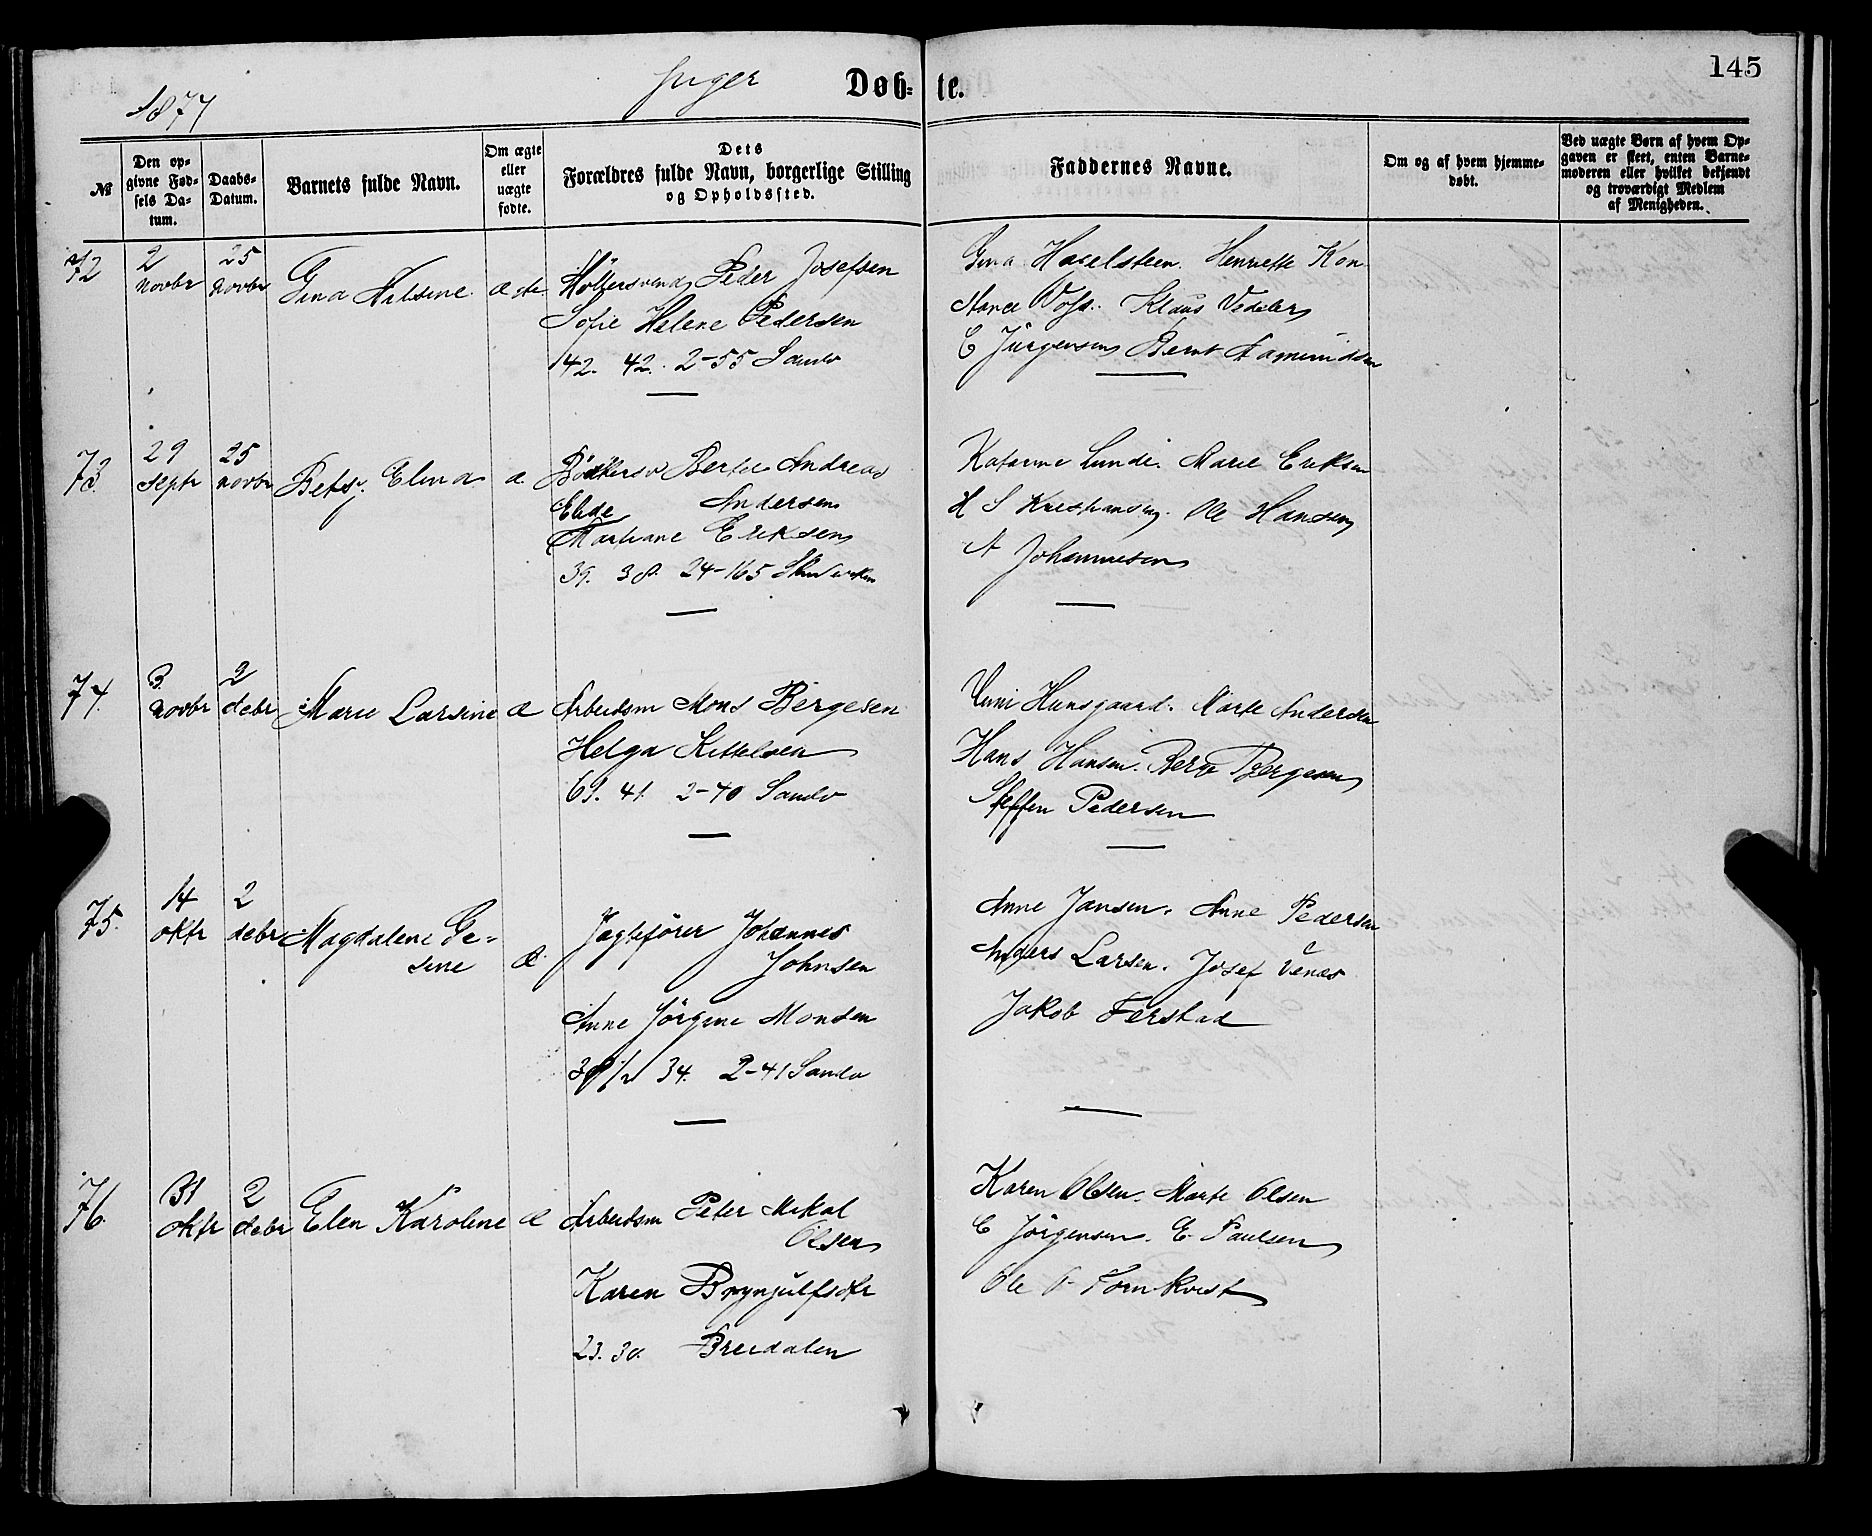 1877
Piger
Døb-te.
145
№
Den op-
givne Fød-
sels Da-
tum.
Daabs-
Datum.
Barnets fulde Navn.
Om ægte
eller
uægte
fødte.
Dets
Forældres fulde Navn, borgerlige Stilling
og Opholdssted.
Faddernes Navne.
Om og af hvem hjemme-
døbt.
Ved uægte Børn af hvem Op-
gaven er skeet, enten Barne-
moderen eller hvilket bekjendt
og troværdigt Medlem
af Menigheden.
72
2
novbr
25
novbr
Gina Nilsine
Peder Josefsen
Sofie Helene Pedersen
42. 42. 2-55 Sandv
Gina Haselsteen. Henriette Kon-
Klaus Vedeler
C Jürgensen Bernt Aamundsen
73.
29
septr
25
novbr
Betsy Elina
æ
Bødkersv Berte Andreas
Andersen
Martiane Eriksen
39. 38. 24-165
Katarine Lunde. Marie Eriksen
H S Kristiansen. Ole Hansen
A Johannesen
74.
3.
novbr
2
debr
Marie Larsine
æ
Arbeidsm Mons Bergesen
Helga Kittelsen
69. 41. 2-40 Sandv
Hunsgaard. Marte Andersen
Hans Hansen. Berge Bergesen
Steffen Pedersen
75.
14
oktr
2
debr
Magdalene Ge-
sine
æ.
Jagtefører Johannes
Johnsen
Anne Jörgine Monsen
34. 2-41 Sandv
Anne Jansen. Anne Pedersen
Anders Larsen. Josef Venes
Jakob Ferstad
76.
31
oktr
2
debr
Elen Karoline
æ
Arbeidsm Peter Mikal
Olsen
Karen Brynjulfsdtr
23. 30. Breidalen
Karen Olsen. Marte Olsen
C Jörgensen. E Paulsen
Ole P Tornkvist